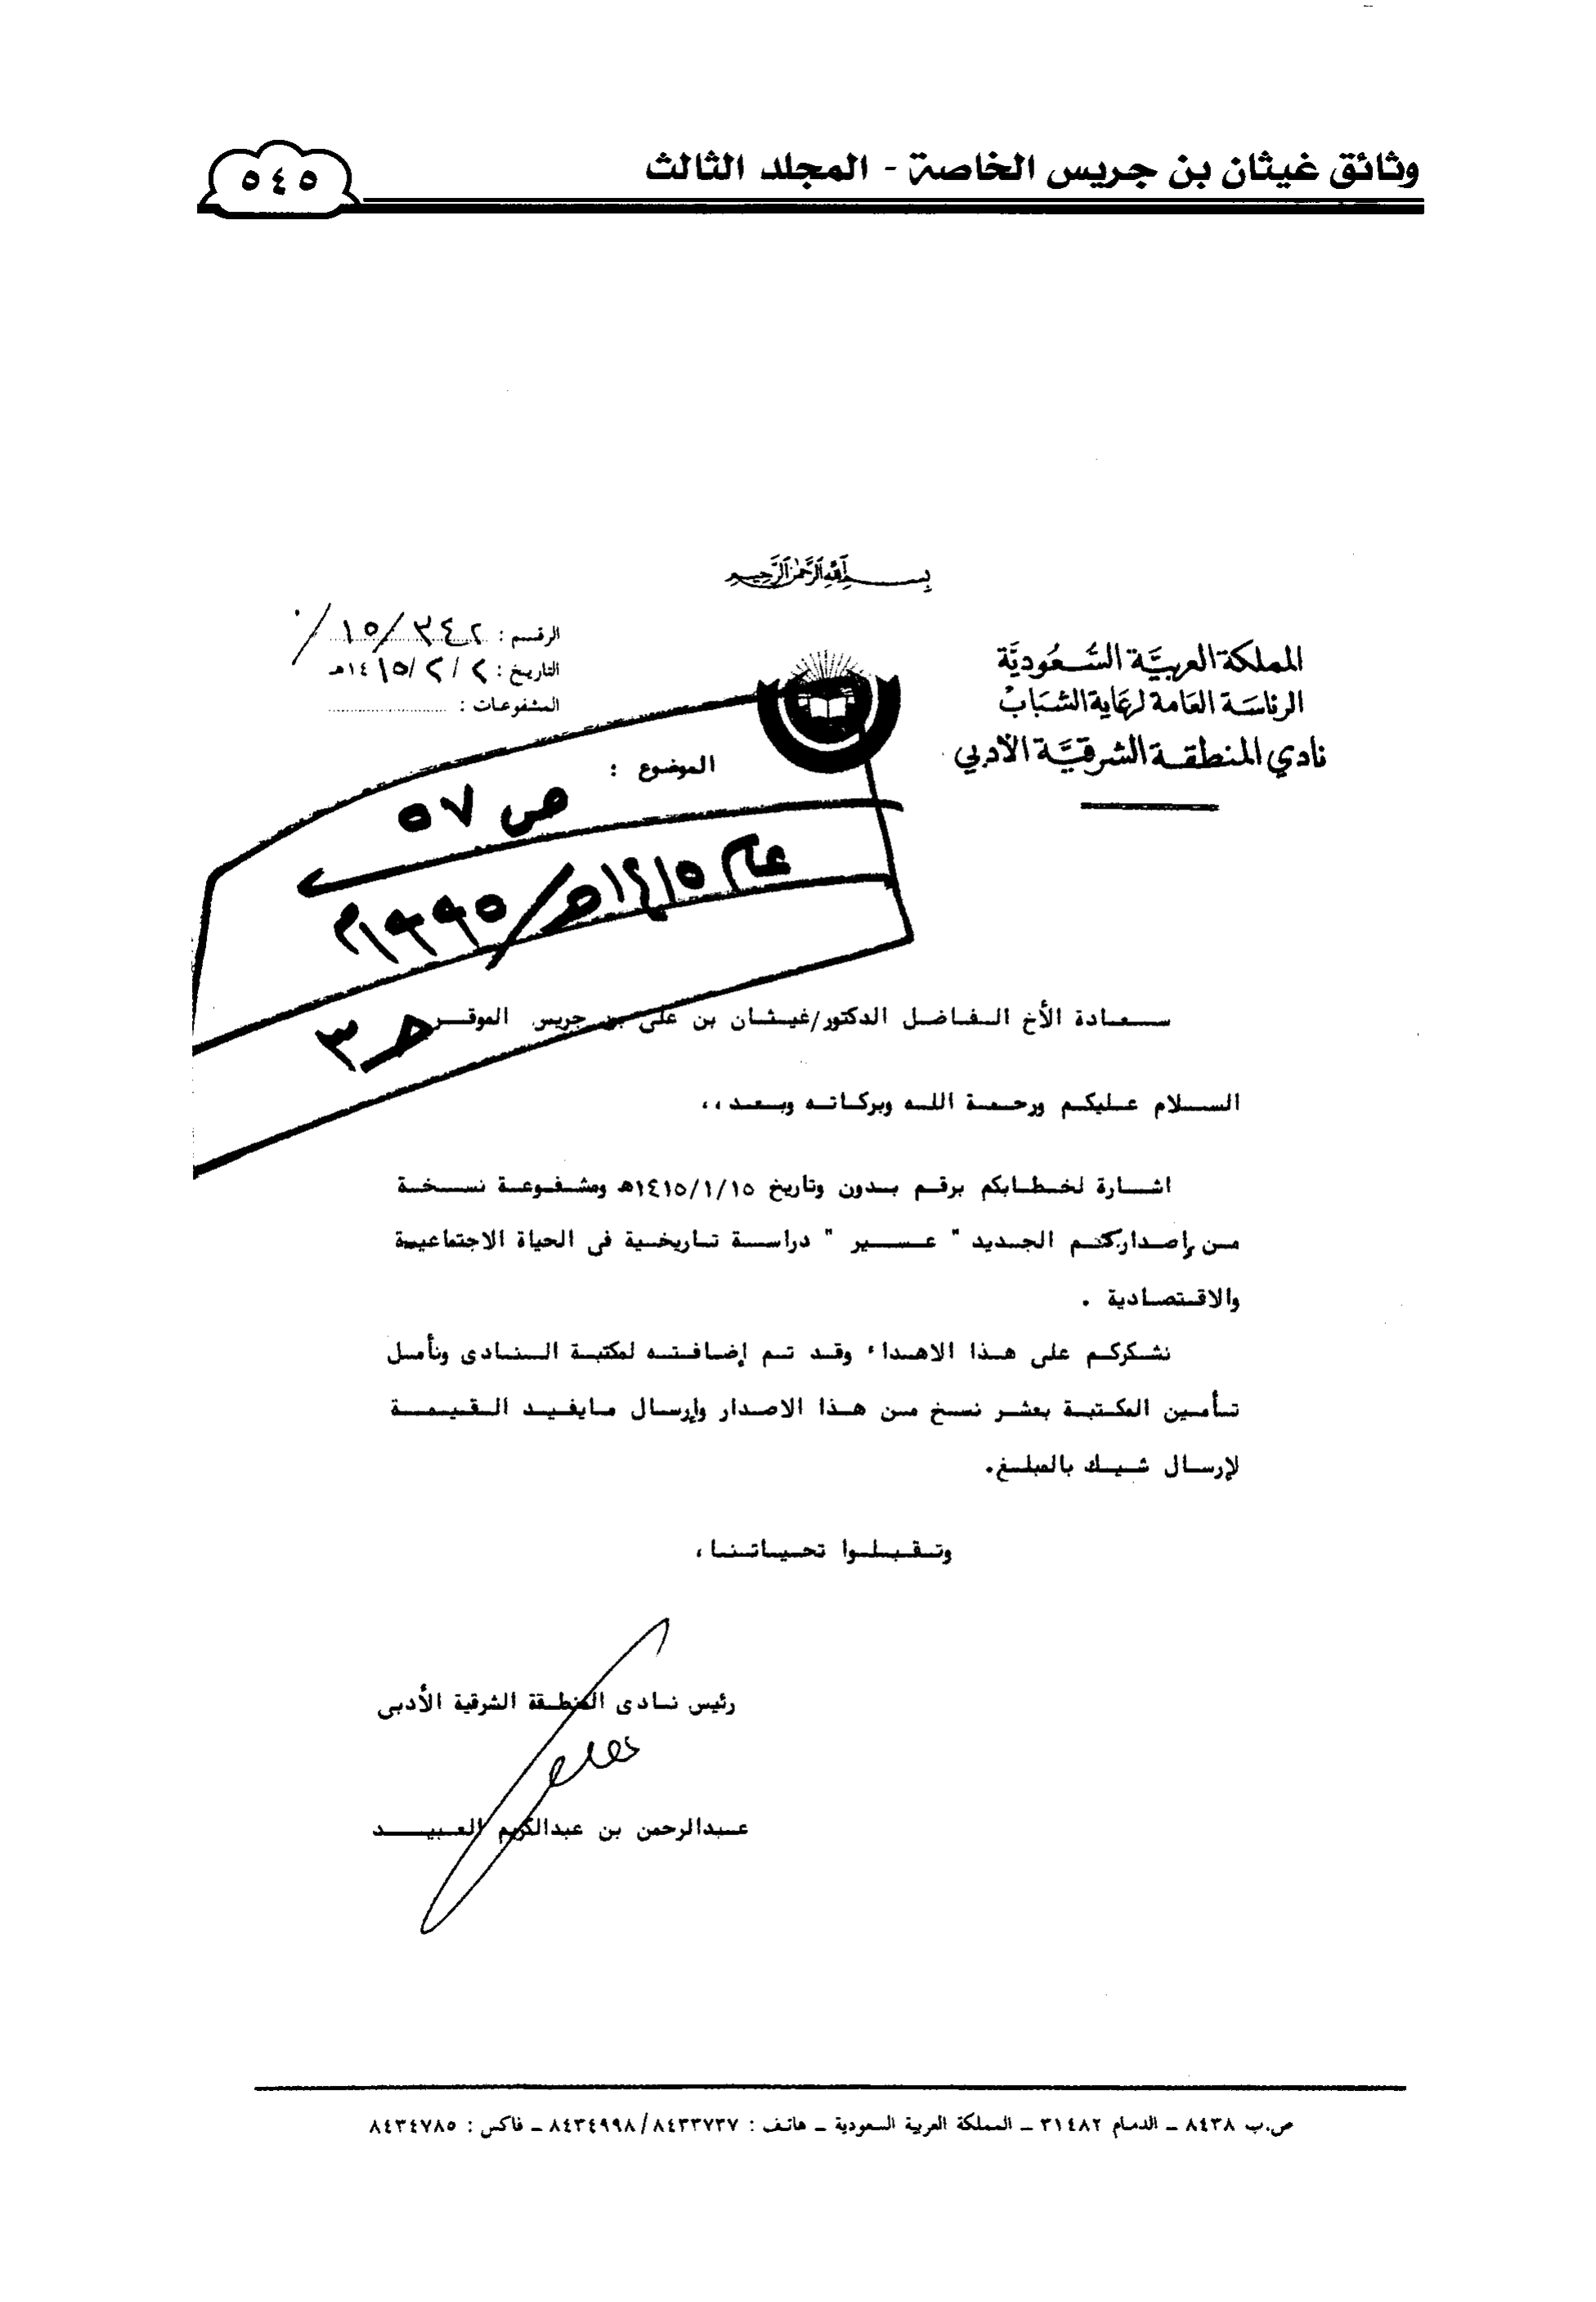 وثائق غيثان بن جريس الخاصة - المجلد الثالث
٥٤٥
بسم الله الرحمن الرحيم
المملكة العربية السعودية
الرئاسة العامة لرعاية الشباب
نادي المنطقة الشرقية الأدبي
الرقم : ٣٤٢/١٥/
التاريخ : ٢/٢/١٤١٥هـ
المشفوعات :
الموضوع :
ص ٥٧
عام ١٤١٥هـ/١٩٩٥م
حـ ٣
سعادة الأخ الفاضل الدكتور/غيثان بن على بن جريس الموقر
السلام عليكم ورحمة الله وبركاته وبعد،،
اشارة لخطابكم برقم بدون وتاريخ ١٤١٥/١/١٥هـ ومشفوعة نسخة
من إصداركم الجديد " عسير " دراسة تاريخية فى الحياة الاجتماعية
والاقتصادية .
نشكركم على هذا الاهداء وقد تم إضافته لمكتبة النادى ونأمل
تأمين المكتبة بعشر نسخ من هذا الاصدار وإرسال مايفيد القيمة
لإرسال شيك بالمبلغ.
وتقبلوا تحياتنا،
رئيس نادى المنطقة الشرقية الأدبى
عبدالرحمن بن عبدالكريم العبيد
ص.ب ٨٤٣٨ ــ الدمام ٣١٤٨٢ ــ المملكة العربية السعودية ــ هاتف : ٨٤٣٤٩٩٨/٨٤٣٣٧٣٧ ــ فاكس : ٨٤٣٤٧٨٥